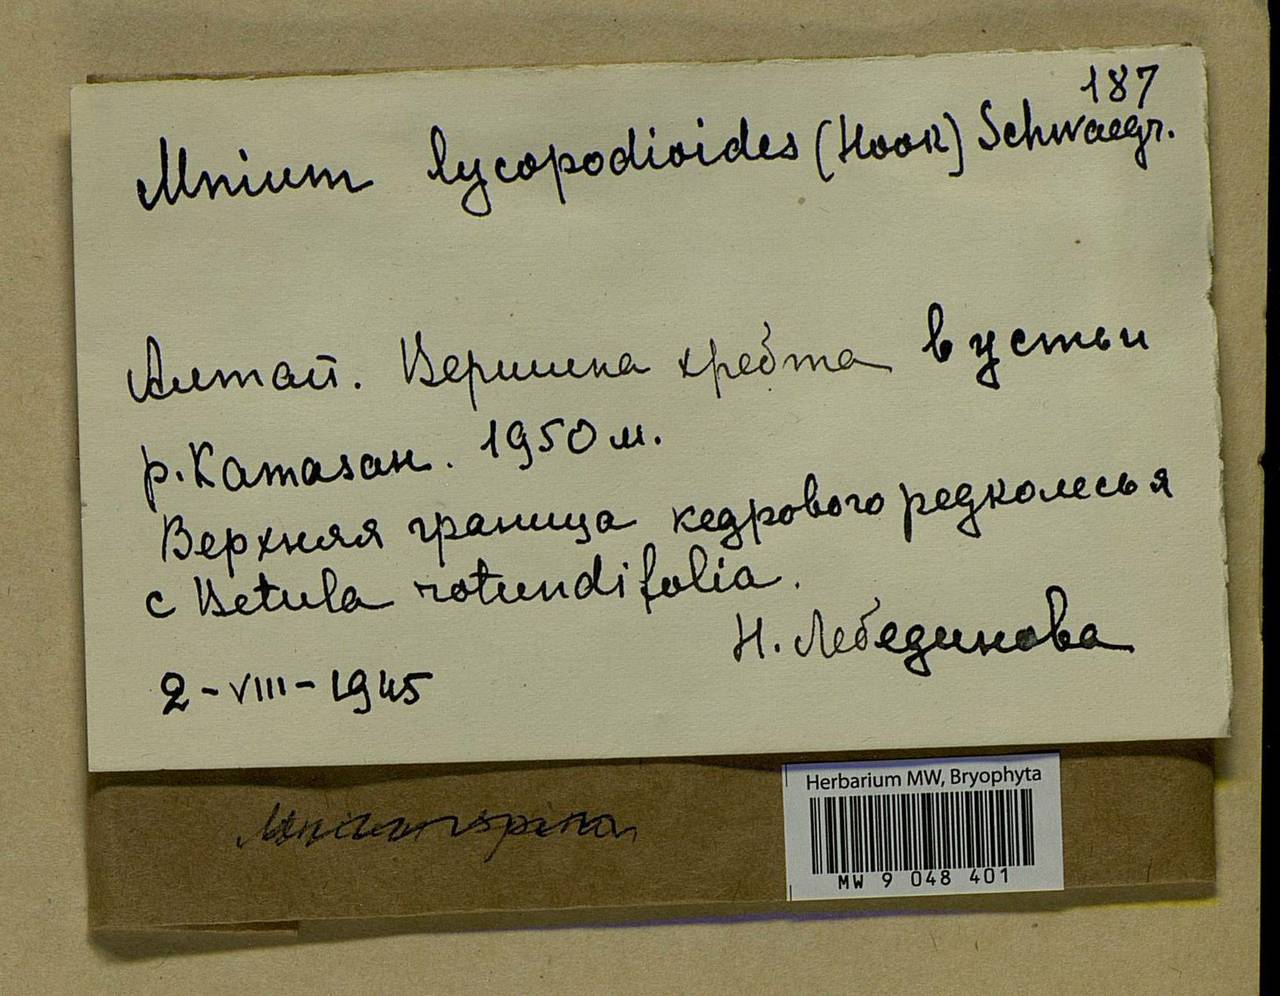 187
Mnium lycopodioides (Hook) Schwaegr.
Алтай. Вершина хребта в устьи
р. Катазан. 1950 м.
Верхняя граница кедрового редколесья
с Betula rotundifolia.
Н. Лебединова
2-VIII-1945
Herbarium MW, Bryophyta
MW 9 048 401
Mnium